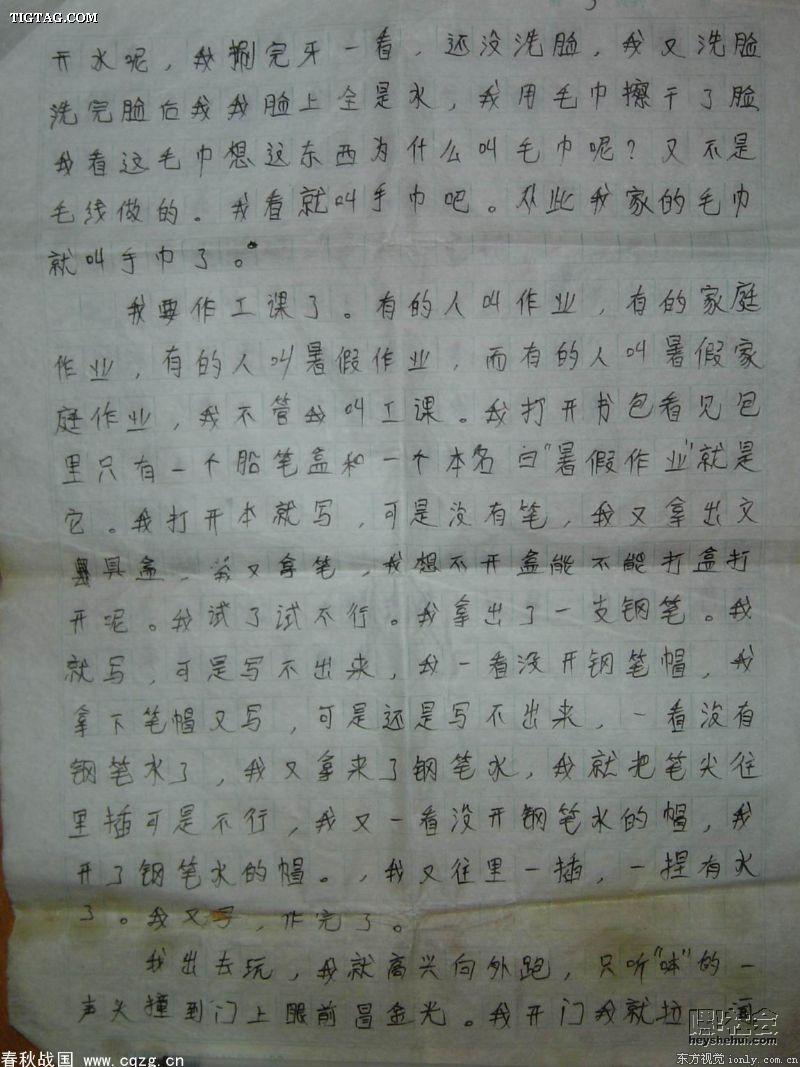 TIGTAG.COM
开水呢，我刷完牙一看，还没洗脸，我又洗脸
洗完脸后我我脸上全是水，我用毛巾擦干了脸
我看这毛巾想这东西为什么叫毛巾呢？又不是
毛线做的。我看就叫手巾吧。从此我家的毛巾
就叫手巾了。
我要作工课了。有的人叫作业，有的家庭
作业，有的人叫暑假作业，而有的人叫暑假家
庭作业，我不管我叫工课。我打开书包看见包
里只有一个铅笔盒和一个本名曰“暑假作业”就是
它。我打开本就写，可是没有笔，我又拿出文
具盒，我又拿笔，我想不开盒能不能打盒打
开呢。我试了试不行。我拿出了一支钢笔。我
就写，可是写不出来，我一看没开钢笔帽，我
拿下笔帽又写，可是还是写不出来，一看没有
钢笔水了，我又拿来了钢笔水，我就把笔尖往
里插可是不行，我又一看没开钢笔水的帽，我
开了钢笔水的帽。，我又往里一插，一捏有水
了。我又写，作完了。
我出去玩，我就高兴向外跑，只听“咔”的一
声头撞到门上眼前冒金光。我开门我就拉
黑社会
heyshehui.com
春秋战国 www.cqzg.cn
东方视觉 ionly.com.cn